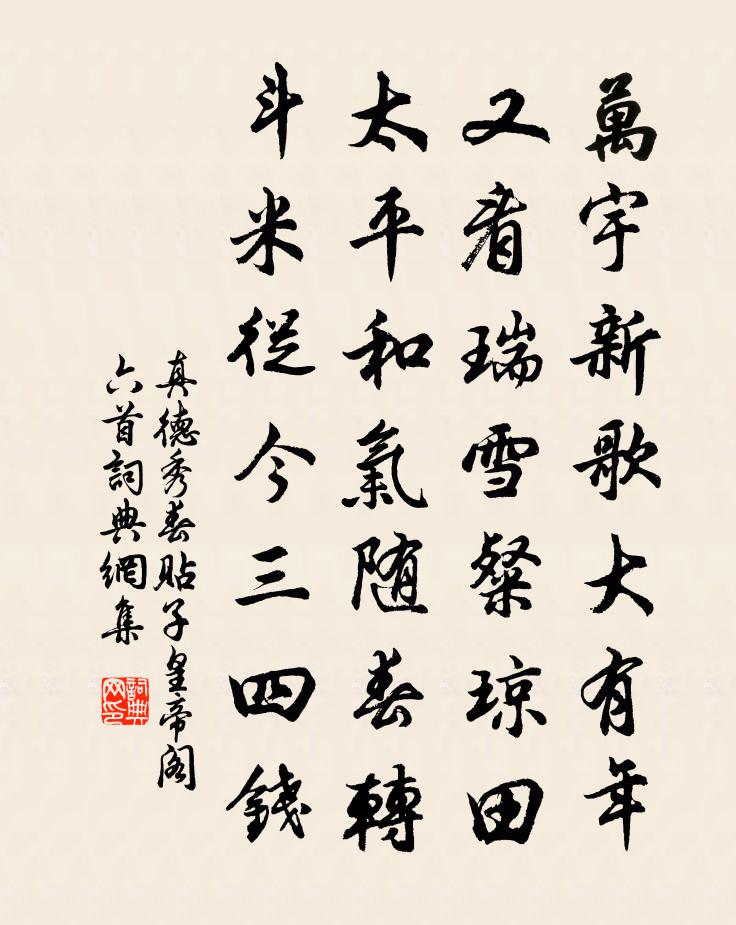 萬宇新歌大有年
又看瑞雪粲琼田
太平和氣随春轉
斗米從今三四錢
真德秀春貼子皇帝阁
六首詞典網集
詞典网印